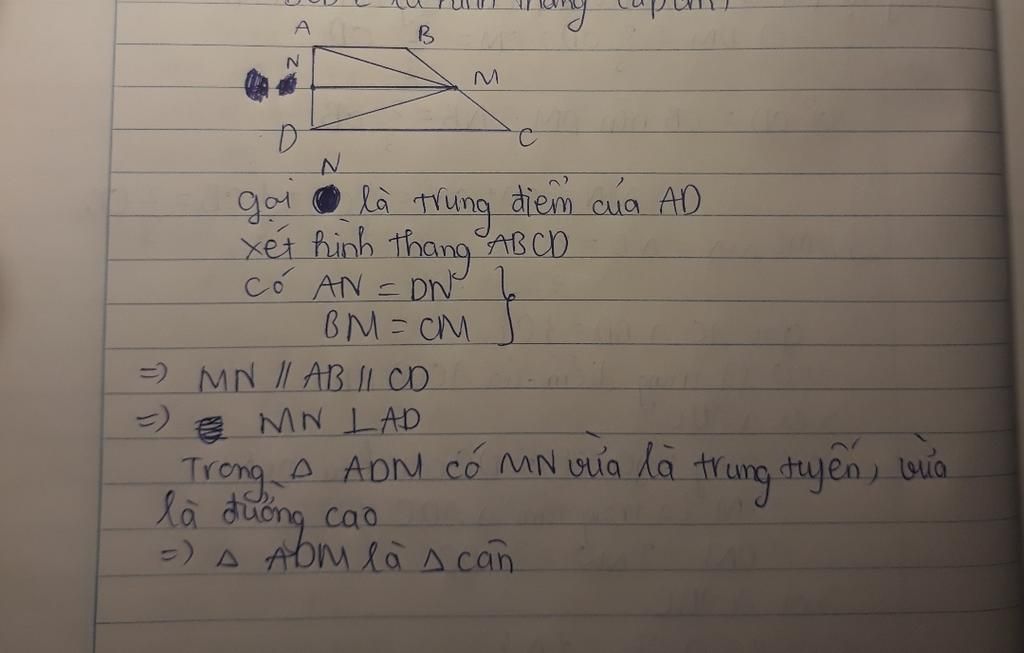 là hình thang (cặp cm)
A B
N M
D C
N
gọi là trung điểm của AD
xét hình thang ABCD
Có AN = DN
BM = CM
=) MN // AB // CD
=) MN ⊥ AD
Trong Δ ADM có MN vừa là trung tuyến, vừa
là đường cao
=) Δ ADM là Δ cân